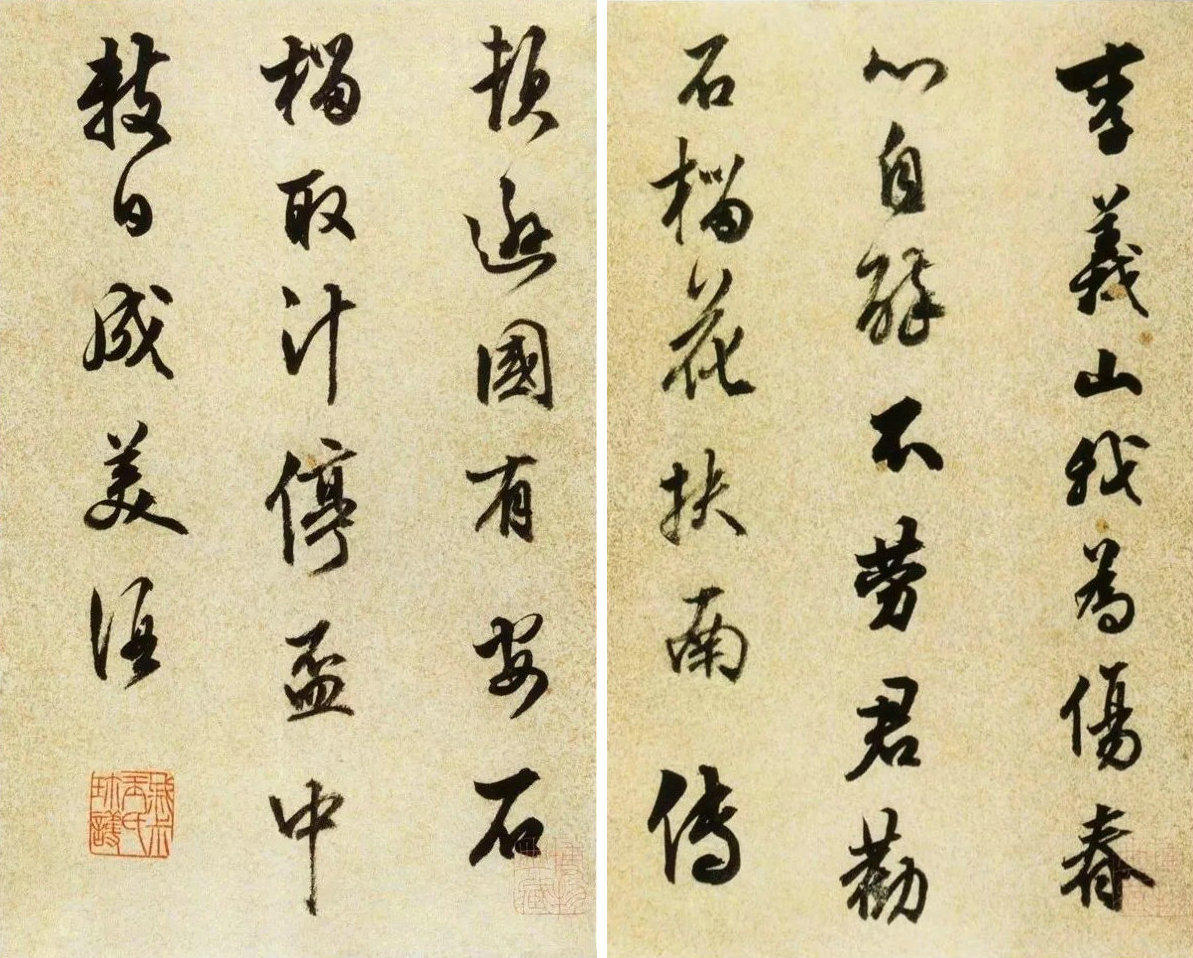 李義山我為傷春
心自醉不勞君勸
石榴花扶南傳
頓遜國有安石
榴取汁停盃中
數日成美酒